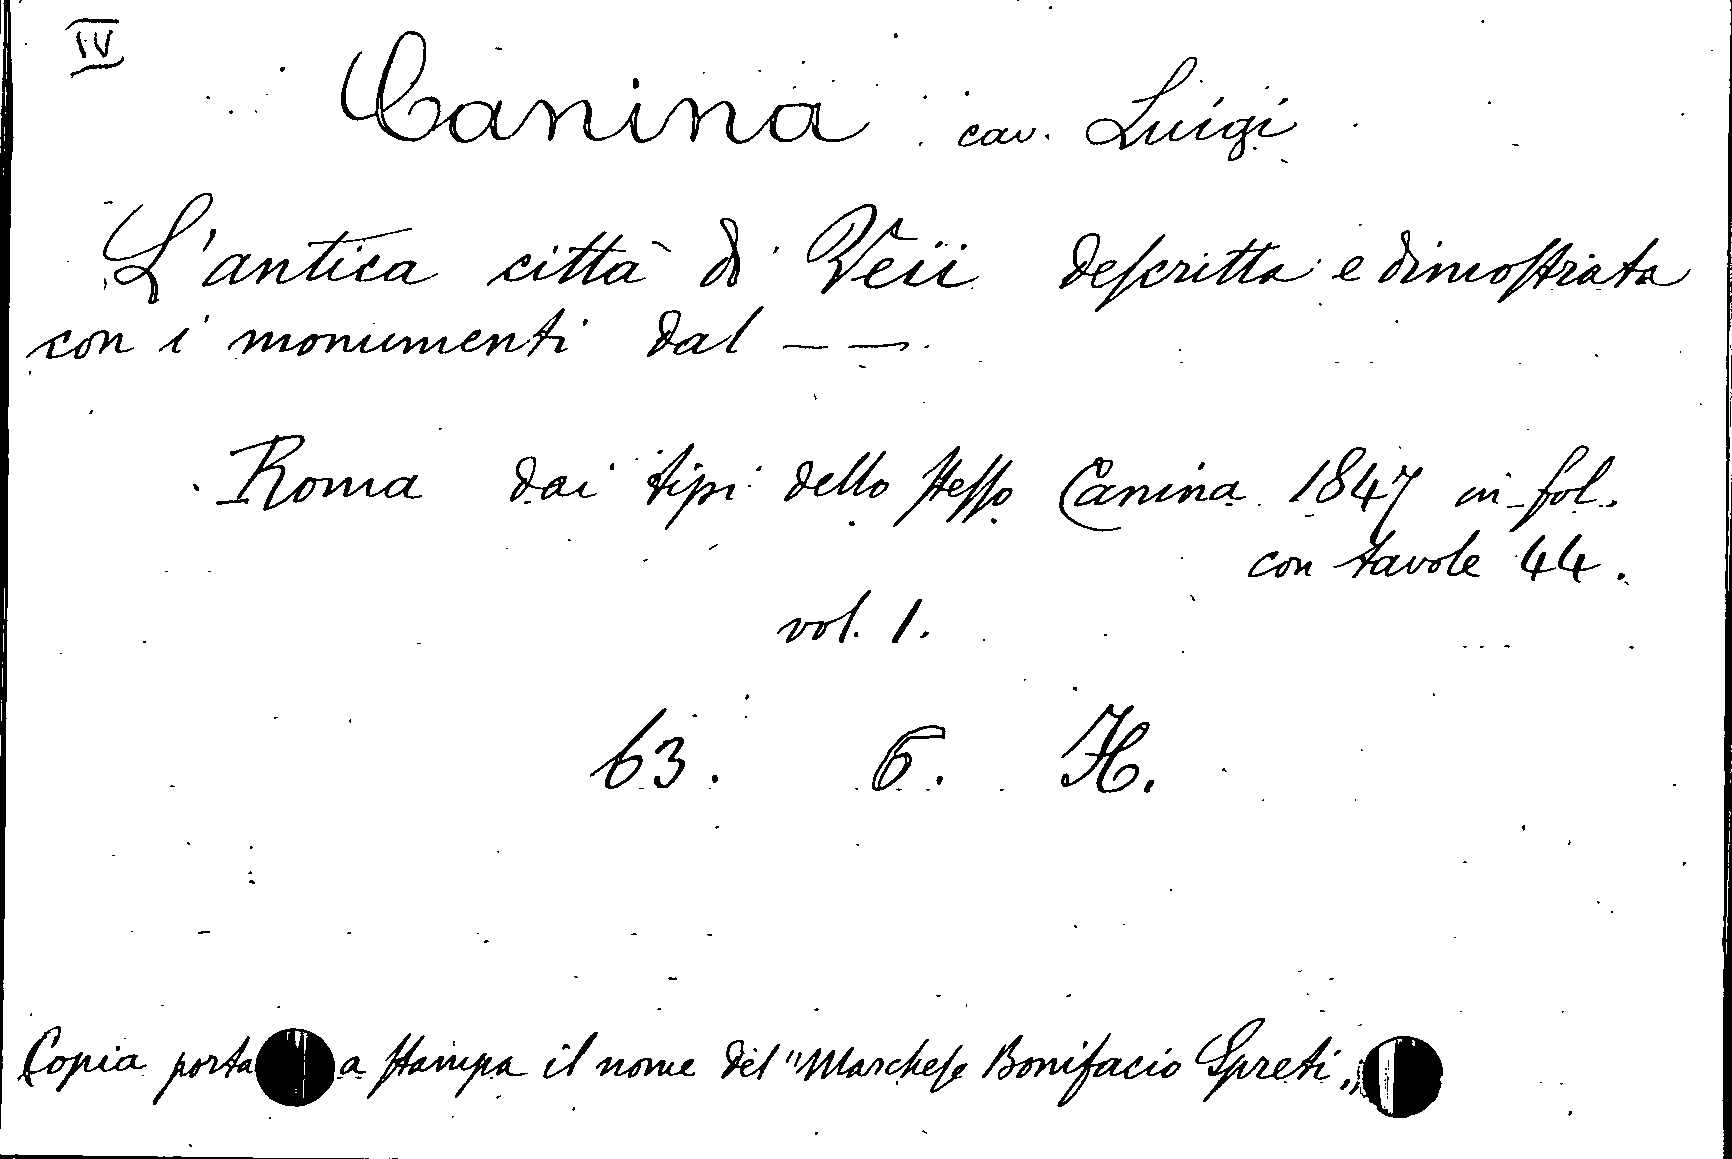 IV
Canina cav. Luigi
L'antica città di Veii descritta e dimostrata
con i monumenti dal — —.
Roma dai tipi dello stesso Canina 1847 in fol.
con tavole 44.
vol. 1.
63. 6. H.
Copia porta a stampa il nome del "Marchese Bonifacio Spreti„